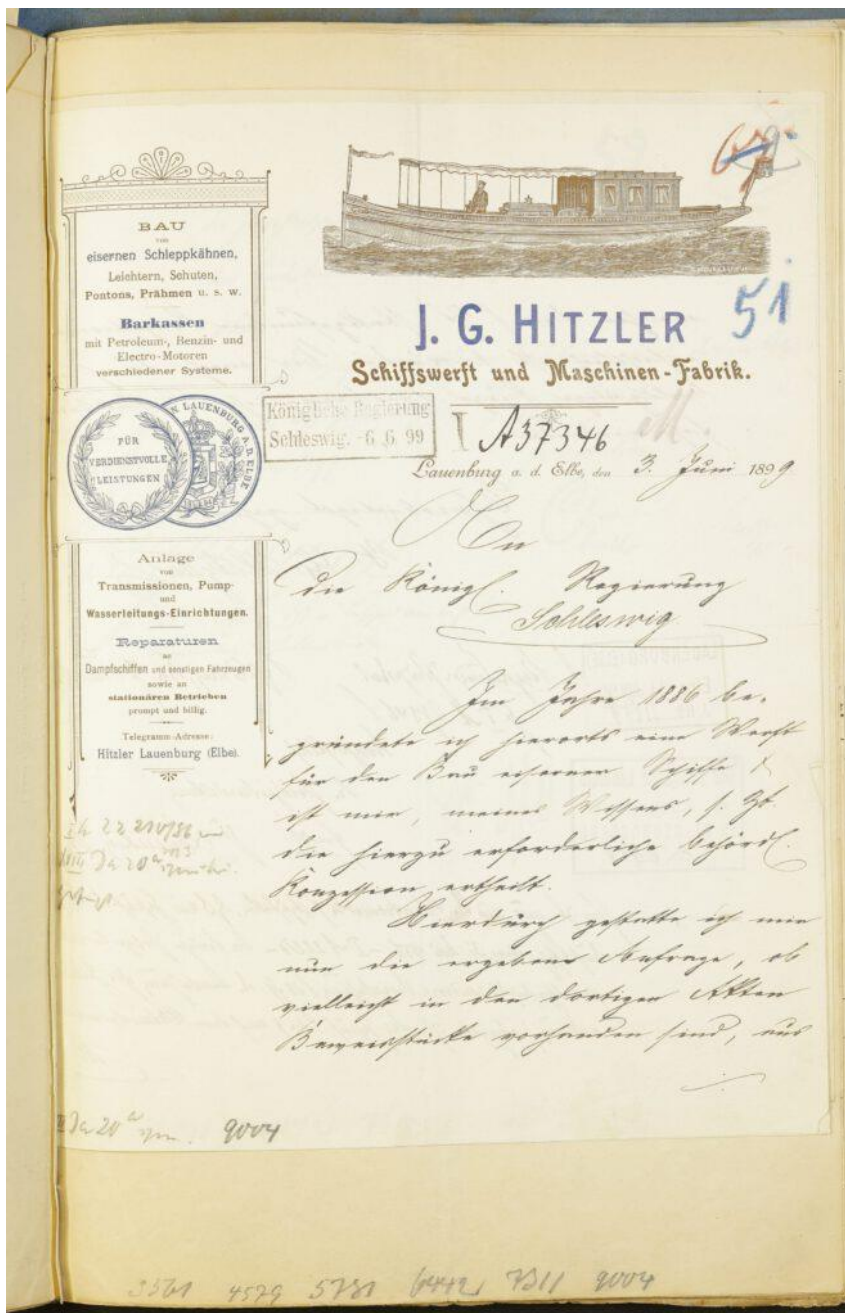 51
J. G. HITZLER
Schiffswerft und Maschinen-Fabrik.
BAU
von
eisernen Schleppkähnen,
Leichtern, Schuten,
Pontons, Prähmen u. s. w.
Barkassen
mit Petroleum-, Benzin- und
Electro-Motoren
verschiedener Systeme.
FÜR
VERDIENSTVOLLE
LEISTUNGEN
LAUENBURG A. D. ELBE
Anlage
von
Transmissionen, Pump-
und
Wasserleitungs-Einrichtungen.
Reparaturen
an
Dampfschiffen und sonstigen Fahrzeugen
sowie an
stationären Betrieben
prompt und billig.
Telegramm-Adresse:
Hitzler Lauenburg (Elbe).
Königliche Regierung
Schleswig. -6.6.99
I A37346
Lauenburg a. d. Elbe, den 3. Juni 1899
An
die Königl. Regierung
Schleswig
Im Jahre 1886 be-
gründete ich hierorts eine Werft
für den Bau eiserner Schiffe &
ist mir, meines Wissens, s. Zt.
die hierzu erforderliche behördl.
Konzession ertheilt.
Hierdurch gestatte ich mir
nun die ergebene Anfrage, ob
vielleicht in den dortigen Akten
Beweisstücke vorhanden sind, aus
9004
3561 4579 5731 6442 7311 9004